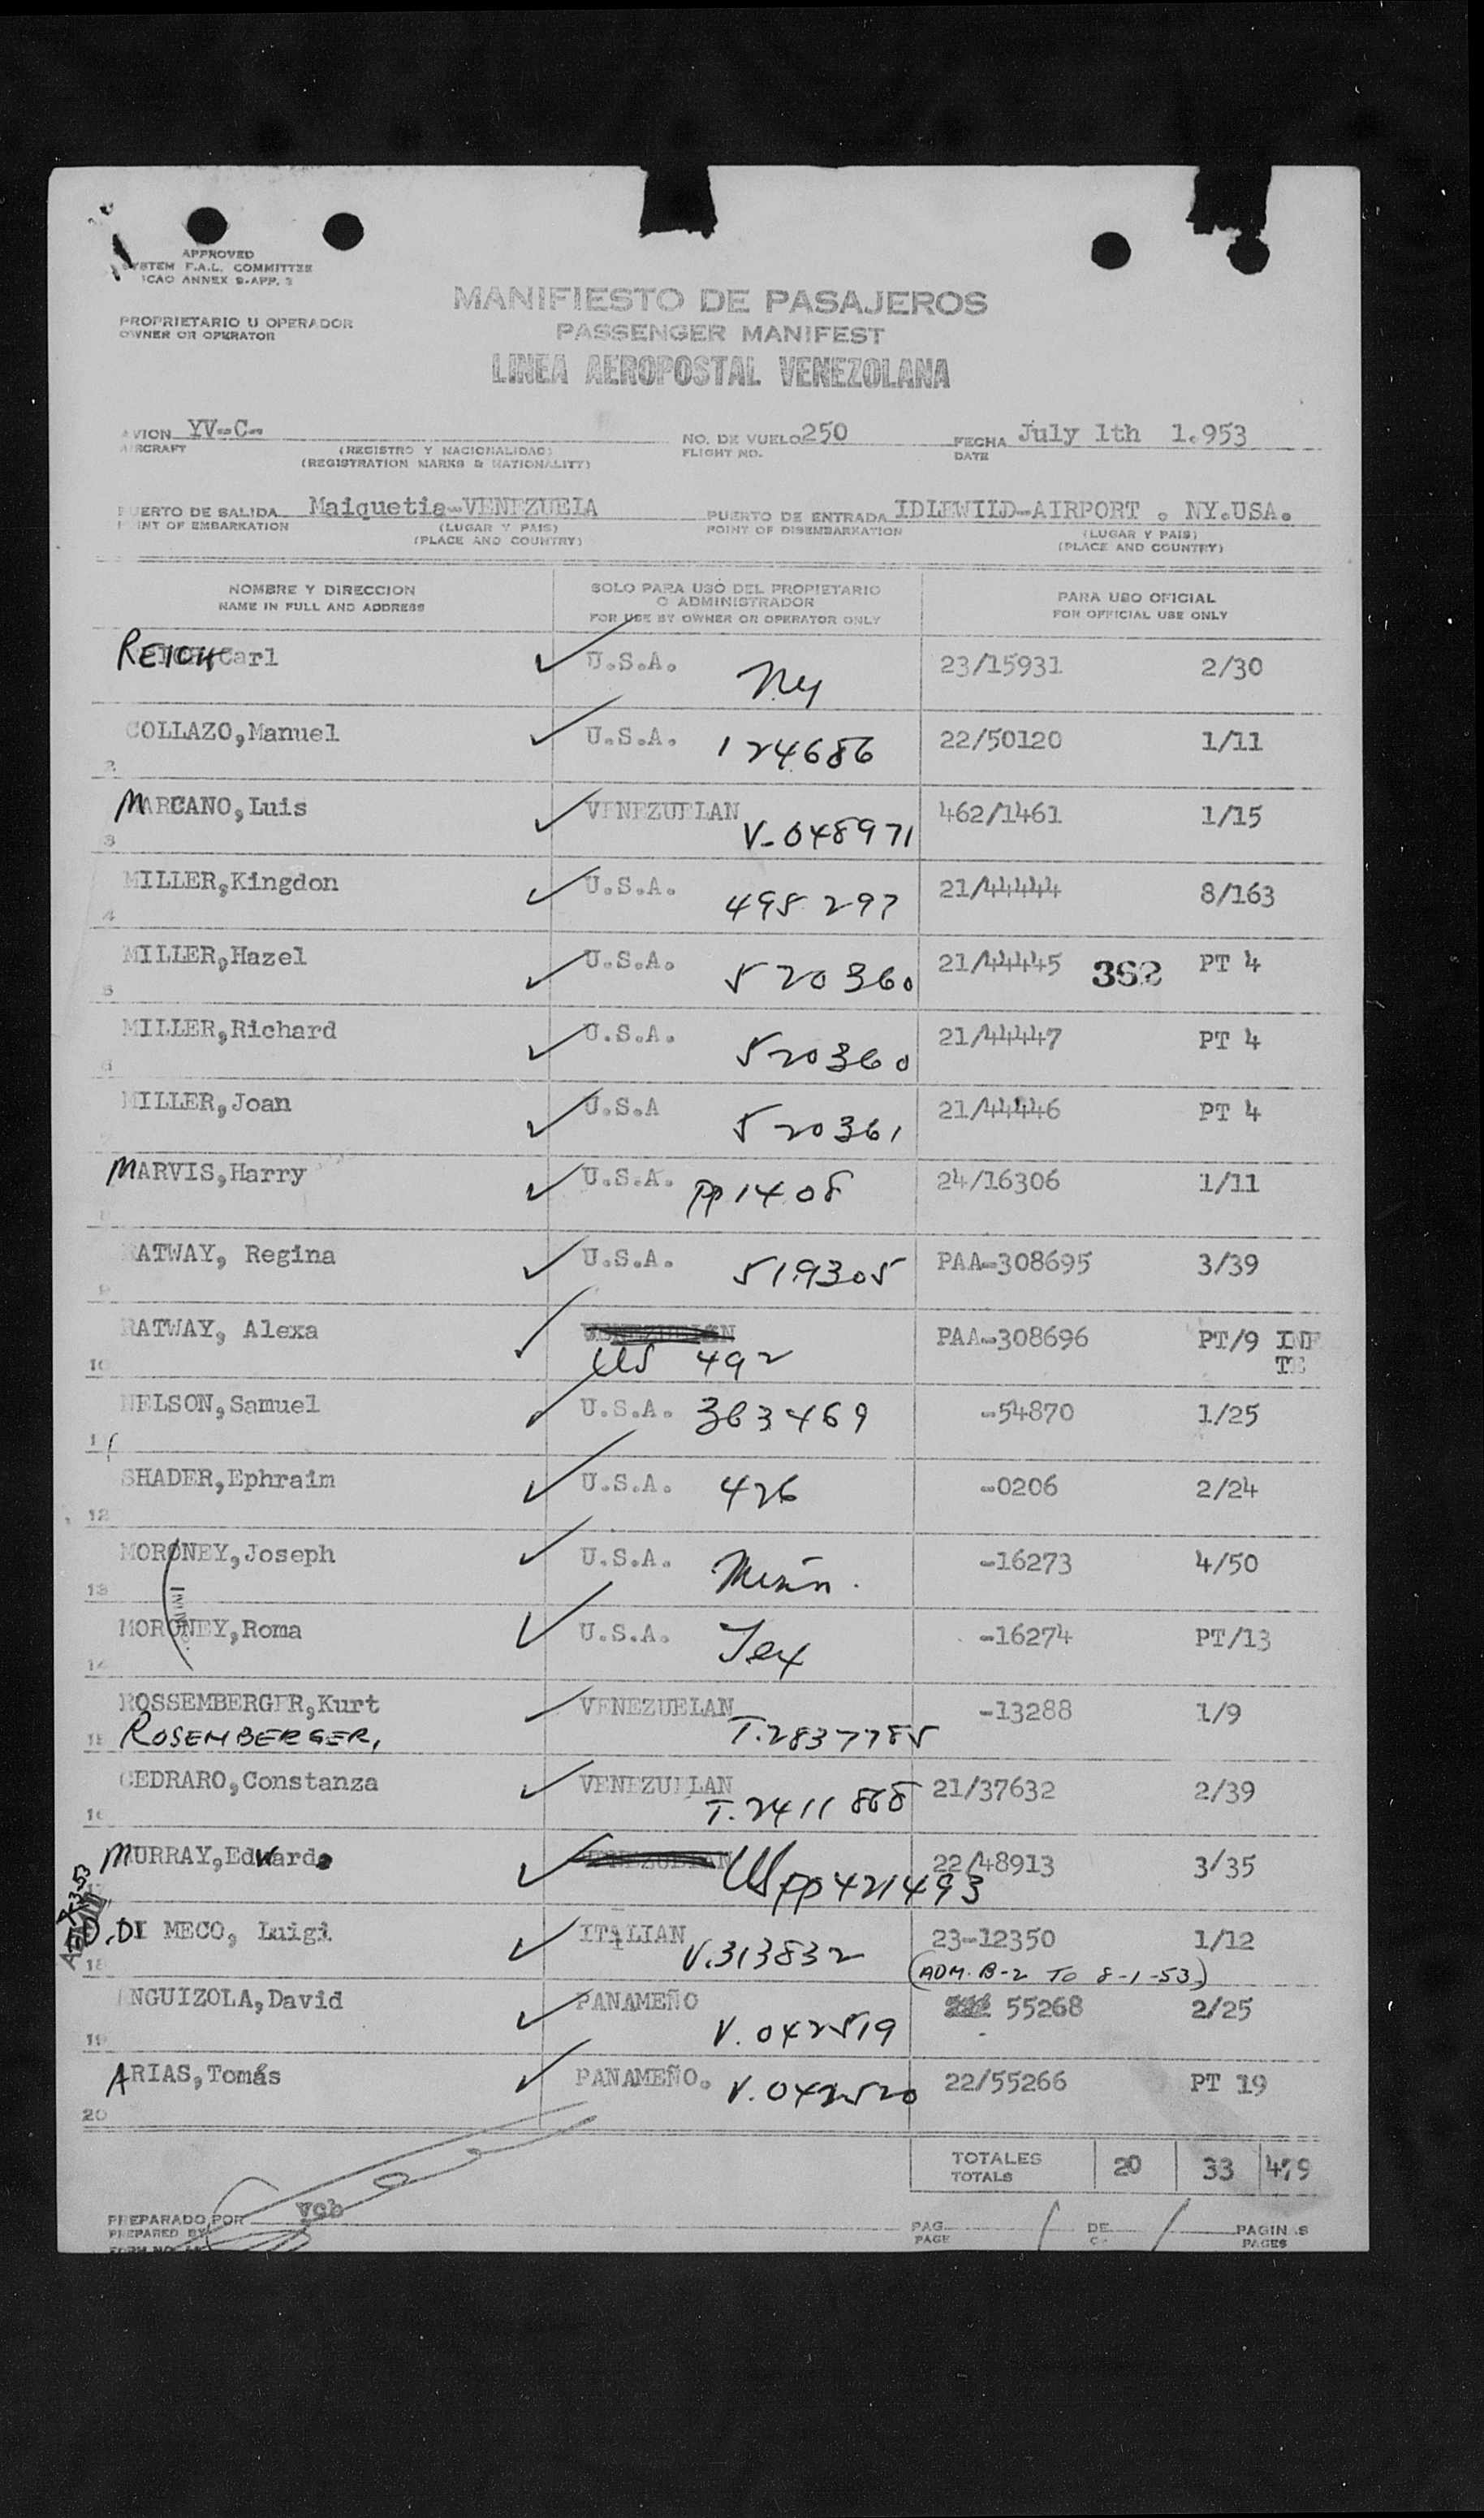 APPROVED
SYSTEM F.A.L. COMMITTEE
ICAO ANNEX 9-APP. 3
MANIFIESTO DE PASAJEROS
PROPRIETARIO U OPERADOR
OWNER OR OPERATOR
PASSENGER MANIFEST
LINEA AEROPOSTAL VENEZOLANA
AVION YV-C- NO. DE VUELO 250 FECHA July 1th 1.953
AIRCRAFT (REGISTRO Y NACIONALIDAD) FLIGHT NO. DATE
(REGISTRATION MARKS & NATIONALITY)
PUERTO DE SALIDA Maiquetia-VENEZUELA PUERTO DE ENTRADA IDLEWILD-AIRPORT . NY.USA.
POINT OF EMBARKATION (LUGAR Y PAIS) POINT OF DISEMBARKATION (LUGAR Y PAIS)
(PLACE AND COUNTRY) (PLACE AND COUNTRY)
NOMBRE Y DIRECCION SOLO PARA USO DEL PROPIETARIO PARA USO OFICIAL
NAME IN FULL AND ADDRESS O ADMINISTRADOR FOR OFFICIAL USE ONLY
FOR USE BY OWNER OR OPERATOR ONLY
REICH Carl U.S.A. NY 23/15931 2/30
COLLAZO,Manuel U.S.A. 124686 22/50120 1/11
2
MARCANO,Luis VENEZUELAN V-048971 462/1461 1/15
3
MILLER,Kingdon U.S.A. 495297 21/44444 8/163
4
MILLER,Hazel U.S.A. 520360 21/44445 362 PT 4
5
MILLER,Richard U.S.A. 520360 21/44447 PT 4
6
MILLER,Joan U.S.A 520361 21/44446 PT 4
MARVIS,Harry U.S.A. PP1408 24/16306 1/11
8
RATWAY, Regina U.S.A. 519305 PAA-308695 3/39
9
RATWAY, Alexa VENEZUELAN PAA-308696 PT/9 INF
10 US 492 TE
NELSON,Samuel U.S.A. 363469 -54870 1/25
11
SHADER,Ephraim U.S.A. 426 -0206 2/24
12
MORONEY,Joseph U.S.A. Minn. -16273 4/50
13
MORONEY,Roma U.S.A. Tex -16274 PT/13
14
ROSSEMBERGER,Kurt VENEZUELAN T.2837785 -13288 1/9
15 ROSEMBERGER,
CEDRARO,Constanza VENEZUELAN T.2411868 21/37632 2/39
16
MURRAY,Edward VENEZUELAN US PP421493 22/48913 3/35
DI MECO, Luigi ITALIAN V.313832 23-12350 1/12
18 (ADM. B-2 TO 8-1-53)
ANGUIZOLA,David PANAMEÑO V.042519 55268 2/25
19
ARIAS,Tomás PANAMEÑO. V.042520 22/55266 PT 19
20
TOTALES 20 33 479
TOTALS
PREPARADO POR vcb PAG. 1 DE 1 PAGINAS
PREPARED BY PAGE PAGES